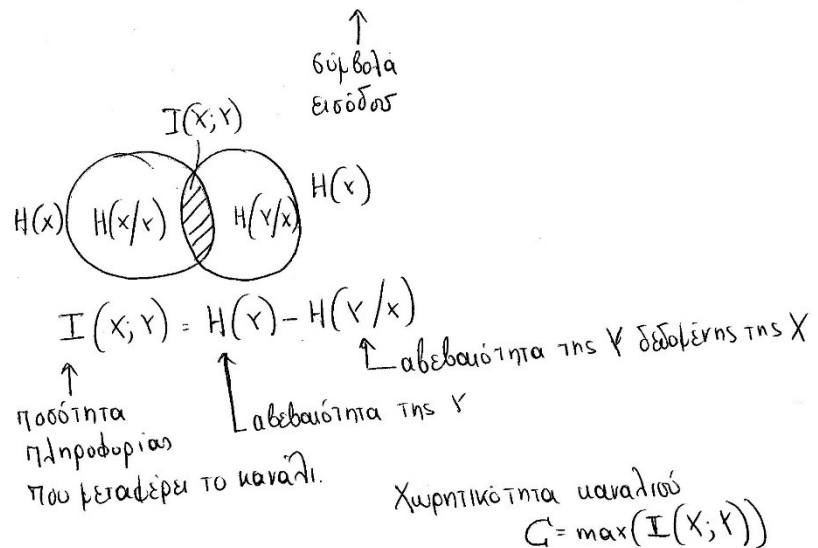 σύμβολα
εισόδου
I(X;Y)
H(X) H(X/Y) H(Y/X) H(Y)
I(X;Y) = H(Y) - H(Y/X)
αβεβαιότητα της Y δεδομένης της X
αβεβαιότητα της Y
ποσότητα
πληροφορίας
που μεταφέρει το κανάλι.
Χωρητικότητα καναλιού
C = max(I(X;Y))